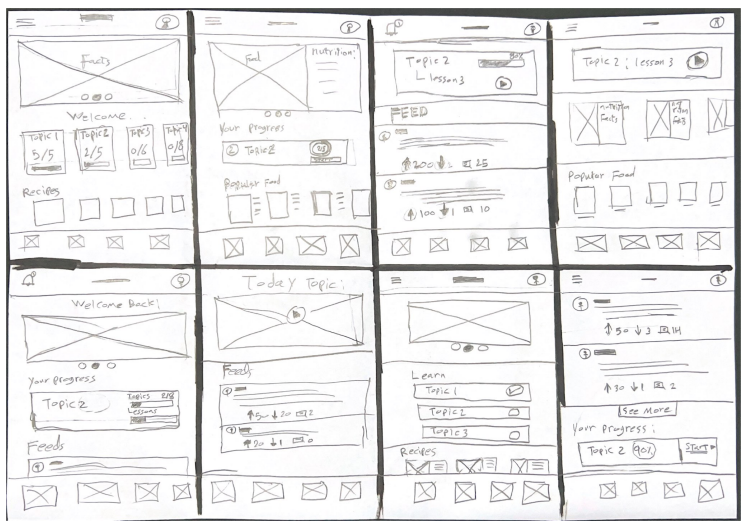 Facts
Welcome...
Topic 1
5/5
Topic 2
2/5
Topic 3
0/6
Topic 4
0/8
Recipes
Food
nutrition:
Your Progress
2 Topic 2
Popular Food
Topic 2
Lesson 3
FEED
200
25
100 1 10
Topic 2 : lesson 3
nutrition
Facts
Popular Food
Welcome Back!
Your Progress
Topic 2
Topics 2/8
Lessons
Feeds
Today Topic:
Feeds
50 20 2
20 1 0
Learn
Topic 1
Topic 2
Topic 3
Recipes
50 3 14
30 1 2
See More
Your Progress:
Topic 2 90% START